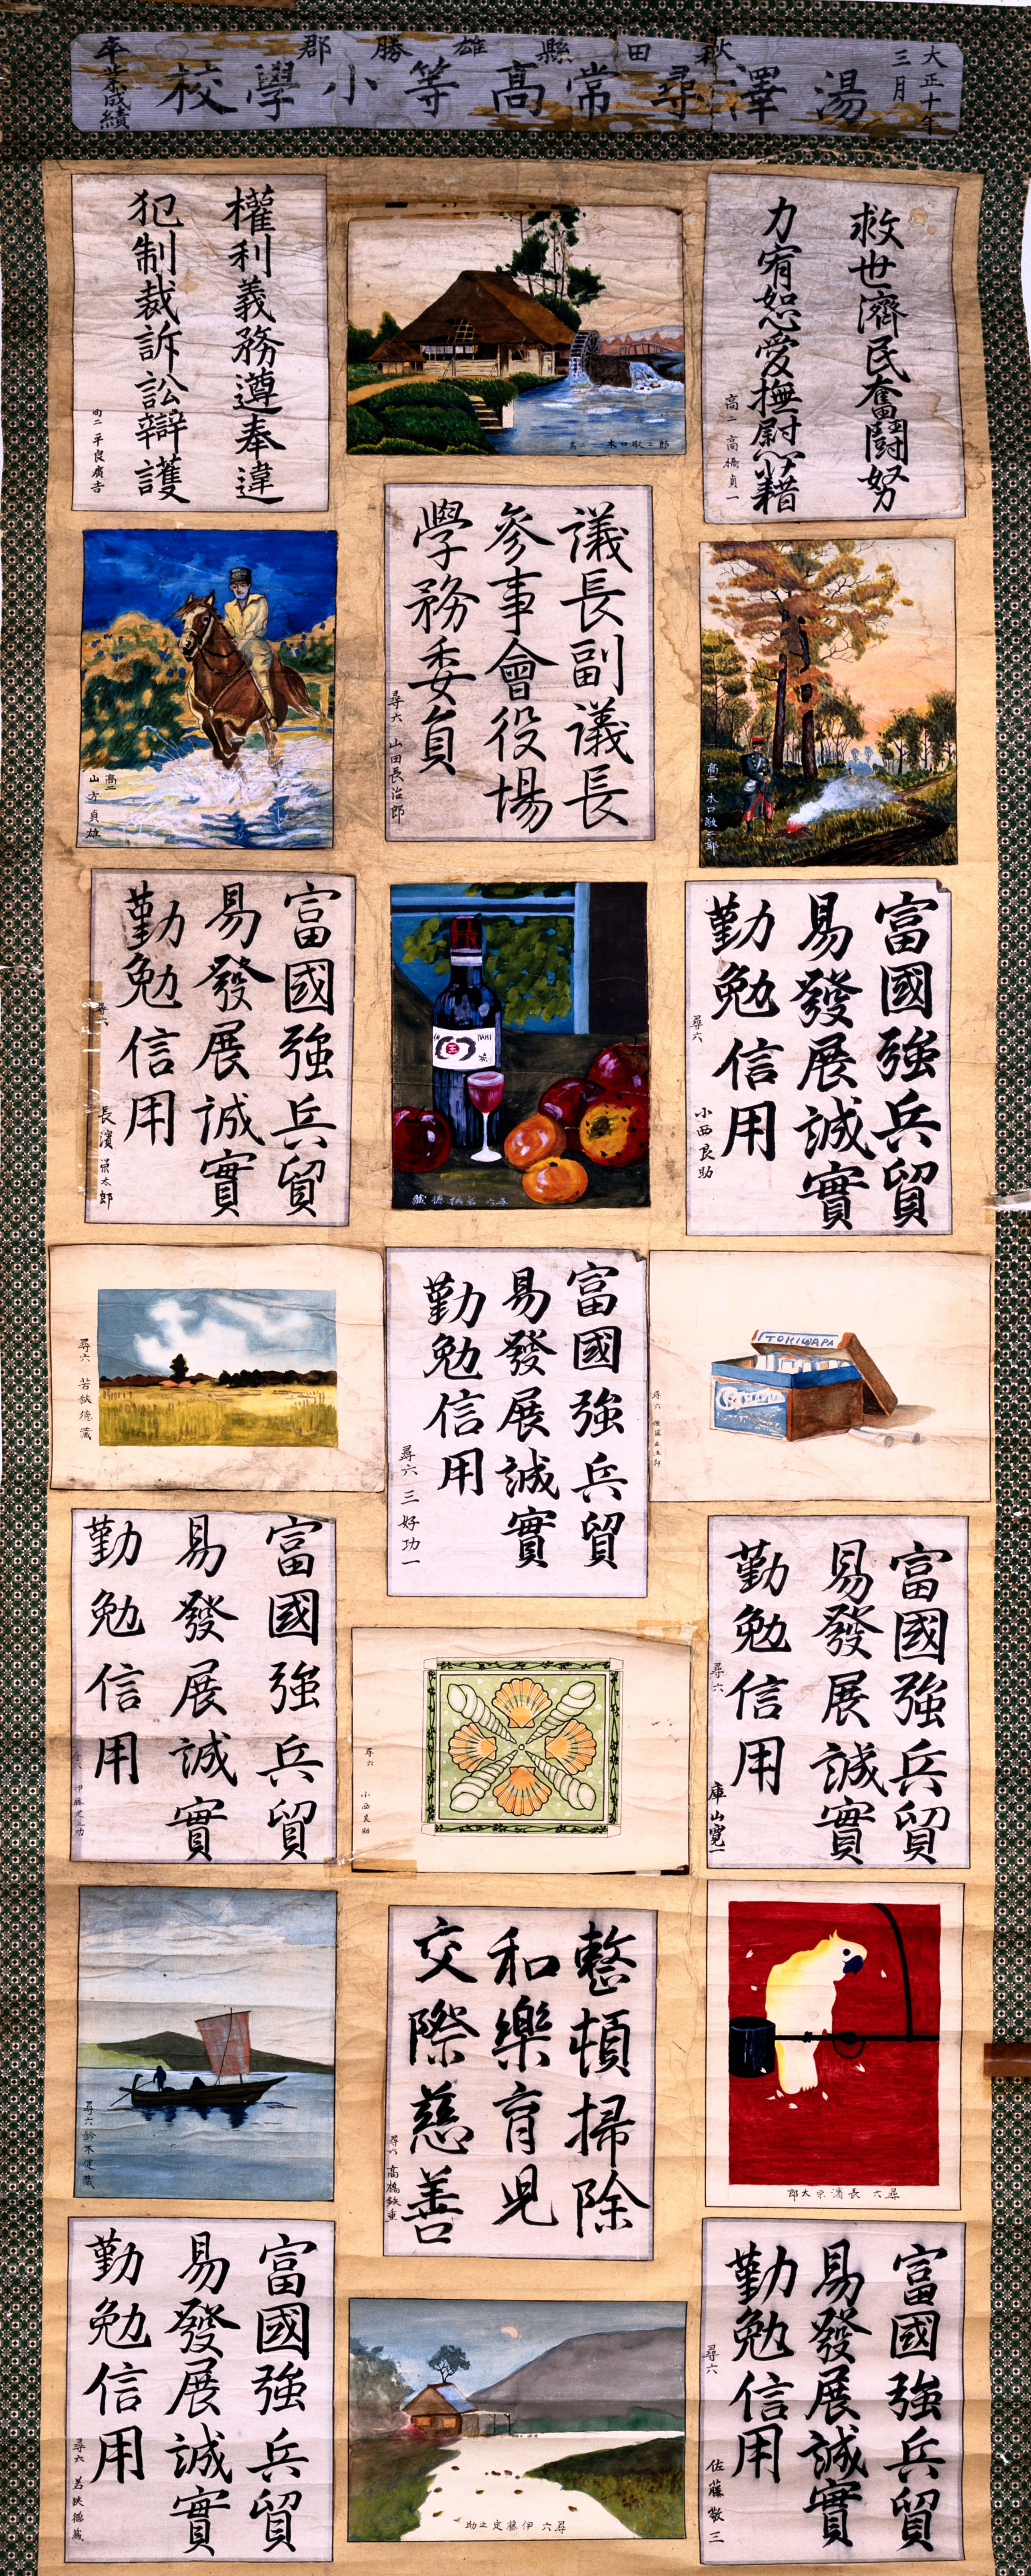 大正十年
三月
秋田縣雄勝郡
湯澤尋常高等小學校
卒業成績
救世濟民奮鬪努
力宥恕愛撫慰藉
高二 高橋貞一
高二 木口敬三郎
權利義務遵奉違
犯制裁訴訟辯護
高二 平良廣吉
高二 木口敬二郎
議長副議長
參事會役場
學務委員
尋六 山田長治郎
高二
山方貞雄
富國強兵貿
易發展誠實
勤勉信用
尋六 小西良助
尋六 若狹德藏
富國強兵貿
易發展誠實
勤勉信用
尋六 長濱榮太郎
TOKIWAPA
尋六
富國強兵貿
易發展誠實
勤勉信用
尋六 三好功一
尋六 若狹德藏
富國強兵貿
易發展誠實
勤勉信用
尋六 庫山寛一
尋六 小西良助
富國強兵貿
易發展誠實
勤勉信用
尋六 伊藤定之助
尋六 長濱榮太郎
整頓掃除
和樂育児
交際慈善
尋六 高橋鉄重
尋六 鈴木健藏
富國強兵貿
易發展誠實
勤勉信用
尋六 佐藤敬三
尋六 伊藤定之助
富國強兵貿
易發展誠實
勤勉信用
尋六 若狹德藏